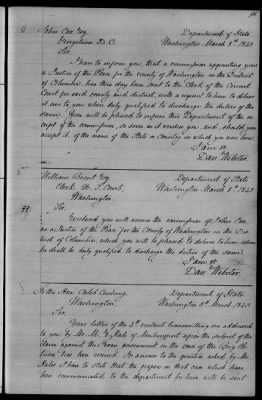 John Cox Esq Department of State
Georgetown D.C. Washington March 8th 1843
Sir
I have to inform you, that a commission appointing you
a Justice of the Peace for the county of Washington in the District
of Columbia, has this day been sent to the Clerk of the Circuit
Court for said county and district, with a request to him to deliver
it over to you when duly qualified to discharge the duties of the
same. You will be pleased to inform this Department of the re-
ceipt of the commission, as soon as it reaches you, and, should you
accept it, of the name of the State or Country in which you were born
I am &c
Danl Webster
William Brent Esq Department of State
Clerk U. S. Court, Washington March 8th 1843
Washington
Sir,
Enclosed you will receive the commission of John Cox
as a Justice of the Peace for the County of Washington in the Dis-
trict of Columbia, which you will be pleased to deliver to him when
he shall be duly qualified to discharge the duties of the same.
I am &c
Danl Webster
To the Hon. Caleb Cushing, Department of State
Washington Washington 8th March 1843
Sir,
Your letter of the 4th instant transmitting one addressed
to you by Mr. M. E. Hale of Newburyport upon the subject of the
claim against the government in the case of the Brig
has been received. In answer to the question asked by Mr.
Hale I have to state that the papers in that case which have
been communicated to the department by him will be sent